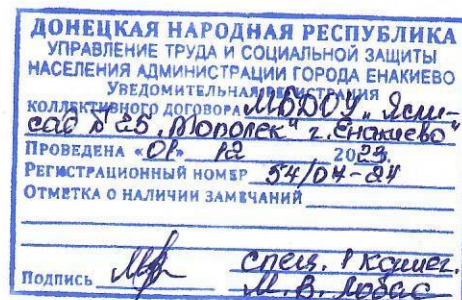 ДОНЕЦКАЯ НАРОДНАЯ РЕСПУБЛИКА
УПРАВЛЕНИЕ ТРУДА И СОЦИАЛЬНОЙ ЗАЩИТЫ
НАСЕЛЕНИЯ АДМИНИСТРАЦИИ ГОРОДА ЕНАКИЕВО
УВЕДОМИТЕЛЬНАЯ РЕГИСТРАЦИЯ
КОЛЛЕКТИВНОГО ДОГОВОРА МБДОУ „Ясли-
сад № 25 „Тополек" г. Енакиево"
ПРОВЕДЕНА «01» 12 2023.
РЕГИСТРАЦИОННЫЙ НОМЕР 54/04-24
ОТМЕТКА О НАЛИЧИИ ЗАМЕЧАНИЙ
спец. 1 катег.
ПОДПИСЬ М. В. Лобас